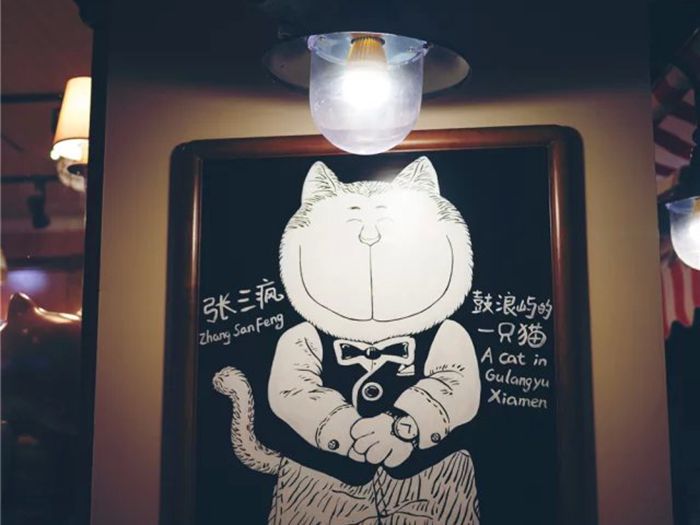 张三疯
Zhang San Feng
鼓浪屿的
一只猫
A cat in
Gulangyu
Xiamen